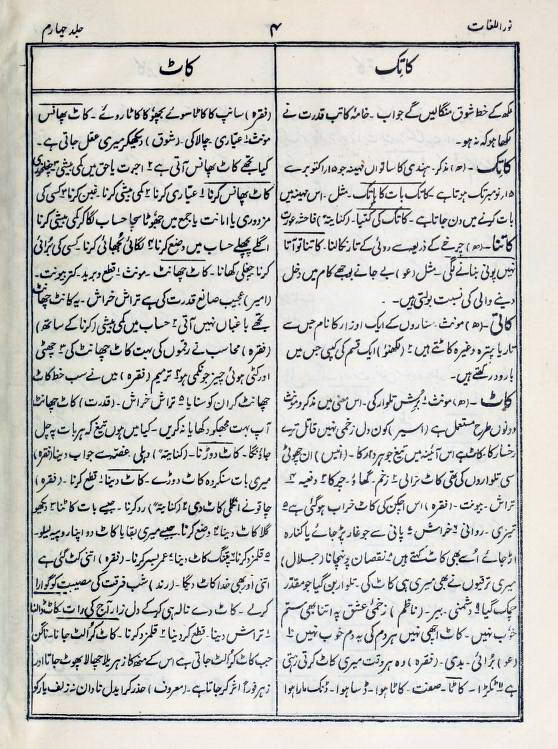 نور اللغات
۴
جلد چہارم
کاتِک
کاٹ
مکھ کے خط شوق منگالیں گے جواب۔ خامۂ کاتب قدرت نے
لکھا ہو کہ نہ ہو۔
کاتِک۔ (ھ) مذکر۔ ہندی کا ساتواں مہینہ جو ۱۵ اکتوبر سے
۱۵ نومبر تک ہوتا ہے۔ کاتک بات کا باتک۔ مثل۔ اس مہینہ میں
بات کرنے میں دن جاتا ہے۔ کاتک کی کُتیا۔ (کنایۃً) فاحشہ عورت
کاتنا۔ (ھ) چرخے کے ذریعہ سے روئی کے تار نکالنا۔ کاتنا تو آتا
نہیں پونی بنانے لگی۔ مثل (عو) بے جانے بوجھے کام میں دخل
دینے والی کی نسبت بولتی ہیں۔
کاتی۔ (ھ) مونث۔ سناروں کے ایک اوزار کا نام جس سے
تار یا پترہ وغیرہ کاٹتے ہیں (لکھنؤ) ایک قسم کی کپی جس میں
بارود رکھتے ہیں۔
کاٹ۔ (ھ) مونث۔ بُرش تلوار کی۔ اس معنی میں مذکر و مونث
دونوں طرح مستعمل ہے (اسیر) کون دل زخمی نہیں قاتل ترے
رخسار کا۔ کاٹ ہے اس آئینہ میں تیغ جوہردار کا۔ (انیس) ان چھوٹی
سی تلواروں کی تھی کاٹ نرالی۔ زخم۔ گھاؤ۔ چیرکا۔ دفعیہ۔
تراش۔ بیونت۔ (فقرہ) اس اچکن کی کاٹ خراب ہوگئی ہے
تیزی۔ روانی۔ خراش۔ پانی سے جو غار پڑجائے یا کنارہ
اڑجائے اُسے بھی کاٹ کہتے ہیں۔ نقصان پہنچانا (جلال)
میری ترقیوں نے بھی میری ہی کاٹ کی۔ تلوار بن گیا جو مقدر
چمک گیا۔ دشمنی۔ بیر۔ (ناظم) زخمیٔ عشق پہ اتنا بھی ستم
خوب نہیں۔ کاٹ اچھی نہیں ہردم کی یہ دم خوب نہیں
(عو) بُرائی۔ بدی۔ (فقرہ) وہ ہر وقت میری کاٹ کرتی رہتی
ہے۔ ٹکڑا۔ کاٹا۔ صفت۔ کاٹا ہوا۔ ڈسا ہوا۔ ڈنک مارا ہوا
(فقرہ) سانپ کا کاٹا سوئے بچھو کا کاٹا روئے۔ کاٹ پھانس
مونث۔ عیاری۔ چالاکی۔ (شوق) دیکھکر میری عقل جاتی ہے۔
کیا تجھے کاٹ پھانس آتی ہے۔ اجرت یا حق میں کمی بیشی
کاٹ پھانس کرنا۔ عیاری کرنا۔ کمی بیشی کرنا۔ غبن کرنا۔ کسی کی
مزدوری یا امانت یا جمع میں جھوٹا سچا حساب لگا کر کمی بیشی کرنا
اگلے پچھلے حساب میں وضع کرنا۔ لگائی بجھائی کرنا۔ کسی کی بُرائی
کرنا۔ چغلی کھانا۔ کاٹ چھانٹ۔ مونث۔ قطع و برید۔ کتر بیونت۔
(امیر) عجیب صانع قدرت کی ہے تراش خراش۔ یہ کانٹ چھانٹ
تجھے باغباں نہیں آتی۔ حساب میں کمی بیشی (کرنا کے ساتھ)
(فقرہ) محاسب نے رقموں کی بہت کاٹ چھانٹ کی۔ چھٹی
اور کٹی ہوئی چیز جو نکمی ہو۔ ترمیم (فقرہ) میں نے سب خط کاٹ
چھانٹ کر ان کو سنایا۔ تراش خراش۔ (قدرت) کاٹ چھانٹ
آپ بہت مجھکو دکھایا نہ کریں۔ کیا میں ہوں تیغ کہ ہر بات پہ چل
جاؤنگا۔ کاٹ دوڑنا۔ (کنایۃً) دہلی۔ غصہ سے جواب دینا (فقرہ)
میری بات سنکر وہ کاٹ دوڑے۔ کاٹ دینا۔ قطع کرنا۔ (فقرہ)
چاقو نے انگلی کاٹ دی۔ (کنایۃً) رد کرنا۔ جیسے بات کاٹنا۔ دیکھو
گلا کاٹ دینا۔ وضع کرنا۔ جیسے میری بقایا کاٹ دو اپنا روپیہ لیلو۔
قلمزد کرنا۔ پتنگ کاٹ دینا۔ عمر بسر کرنا۔ (فقرہ) اتنی کٹ گئی ہے
اتنی اور بھی خدا کاٹ دیگا۔ (رند) شب فرقت کی مصیبت کو گوارا
کرلے۔ کاٹ دے نالہ ہی کرکے دل زار آج کی رات۔ کاٹ ڈالنا
تراش دینا۔ قطع کردینا۔ قلمزد کرنا۔ کاٹ کر اُلٹ جانا۔ ناگن
جب کاٹ کر اُلٹ جاتی ہے اس کے منھ کا زہریلا چھالا پھوٹ جاتا اور
زہر فوراً اثر کرجاتا ہے۔ (معروف) حذر کر اے دل نادان نہ زلف یار کو